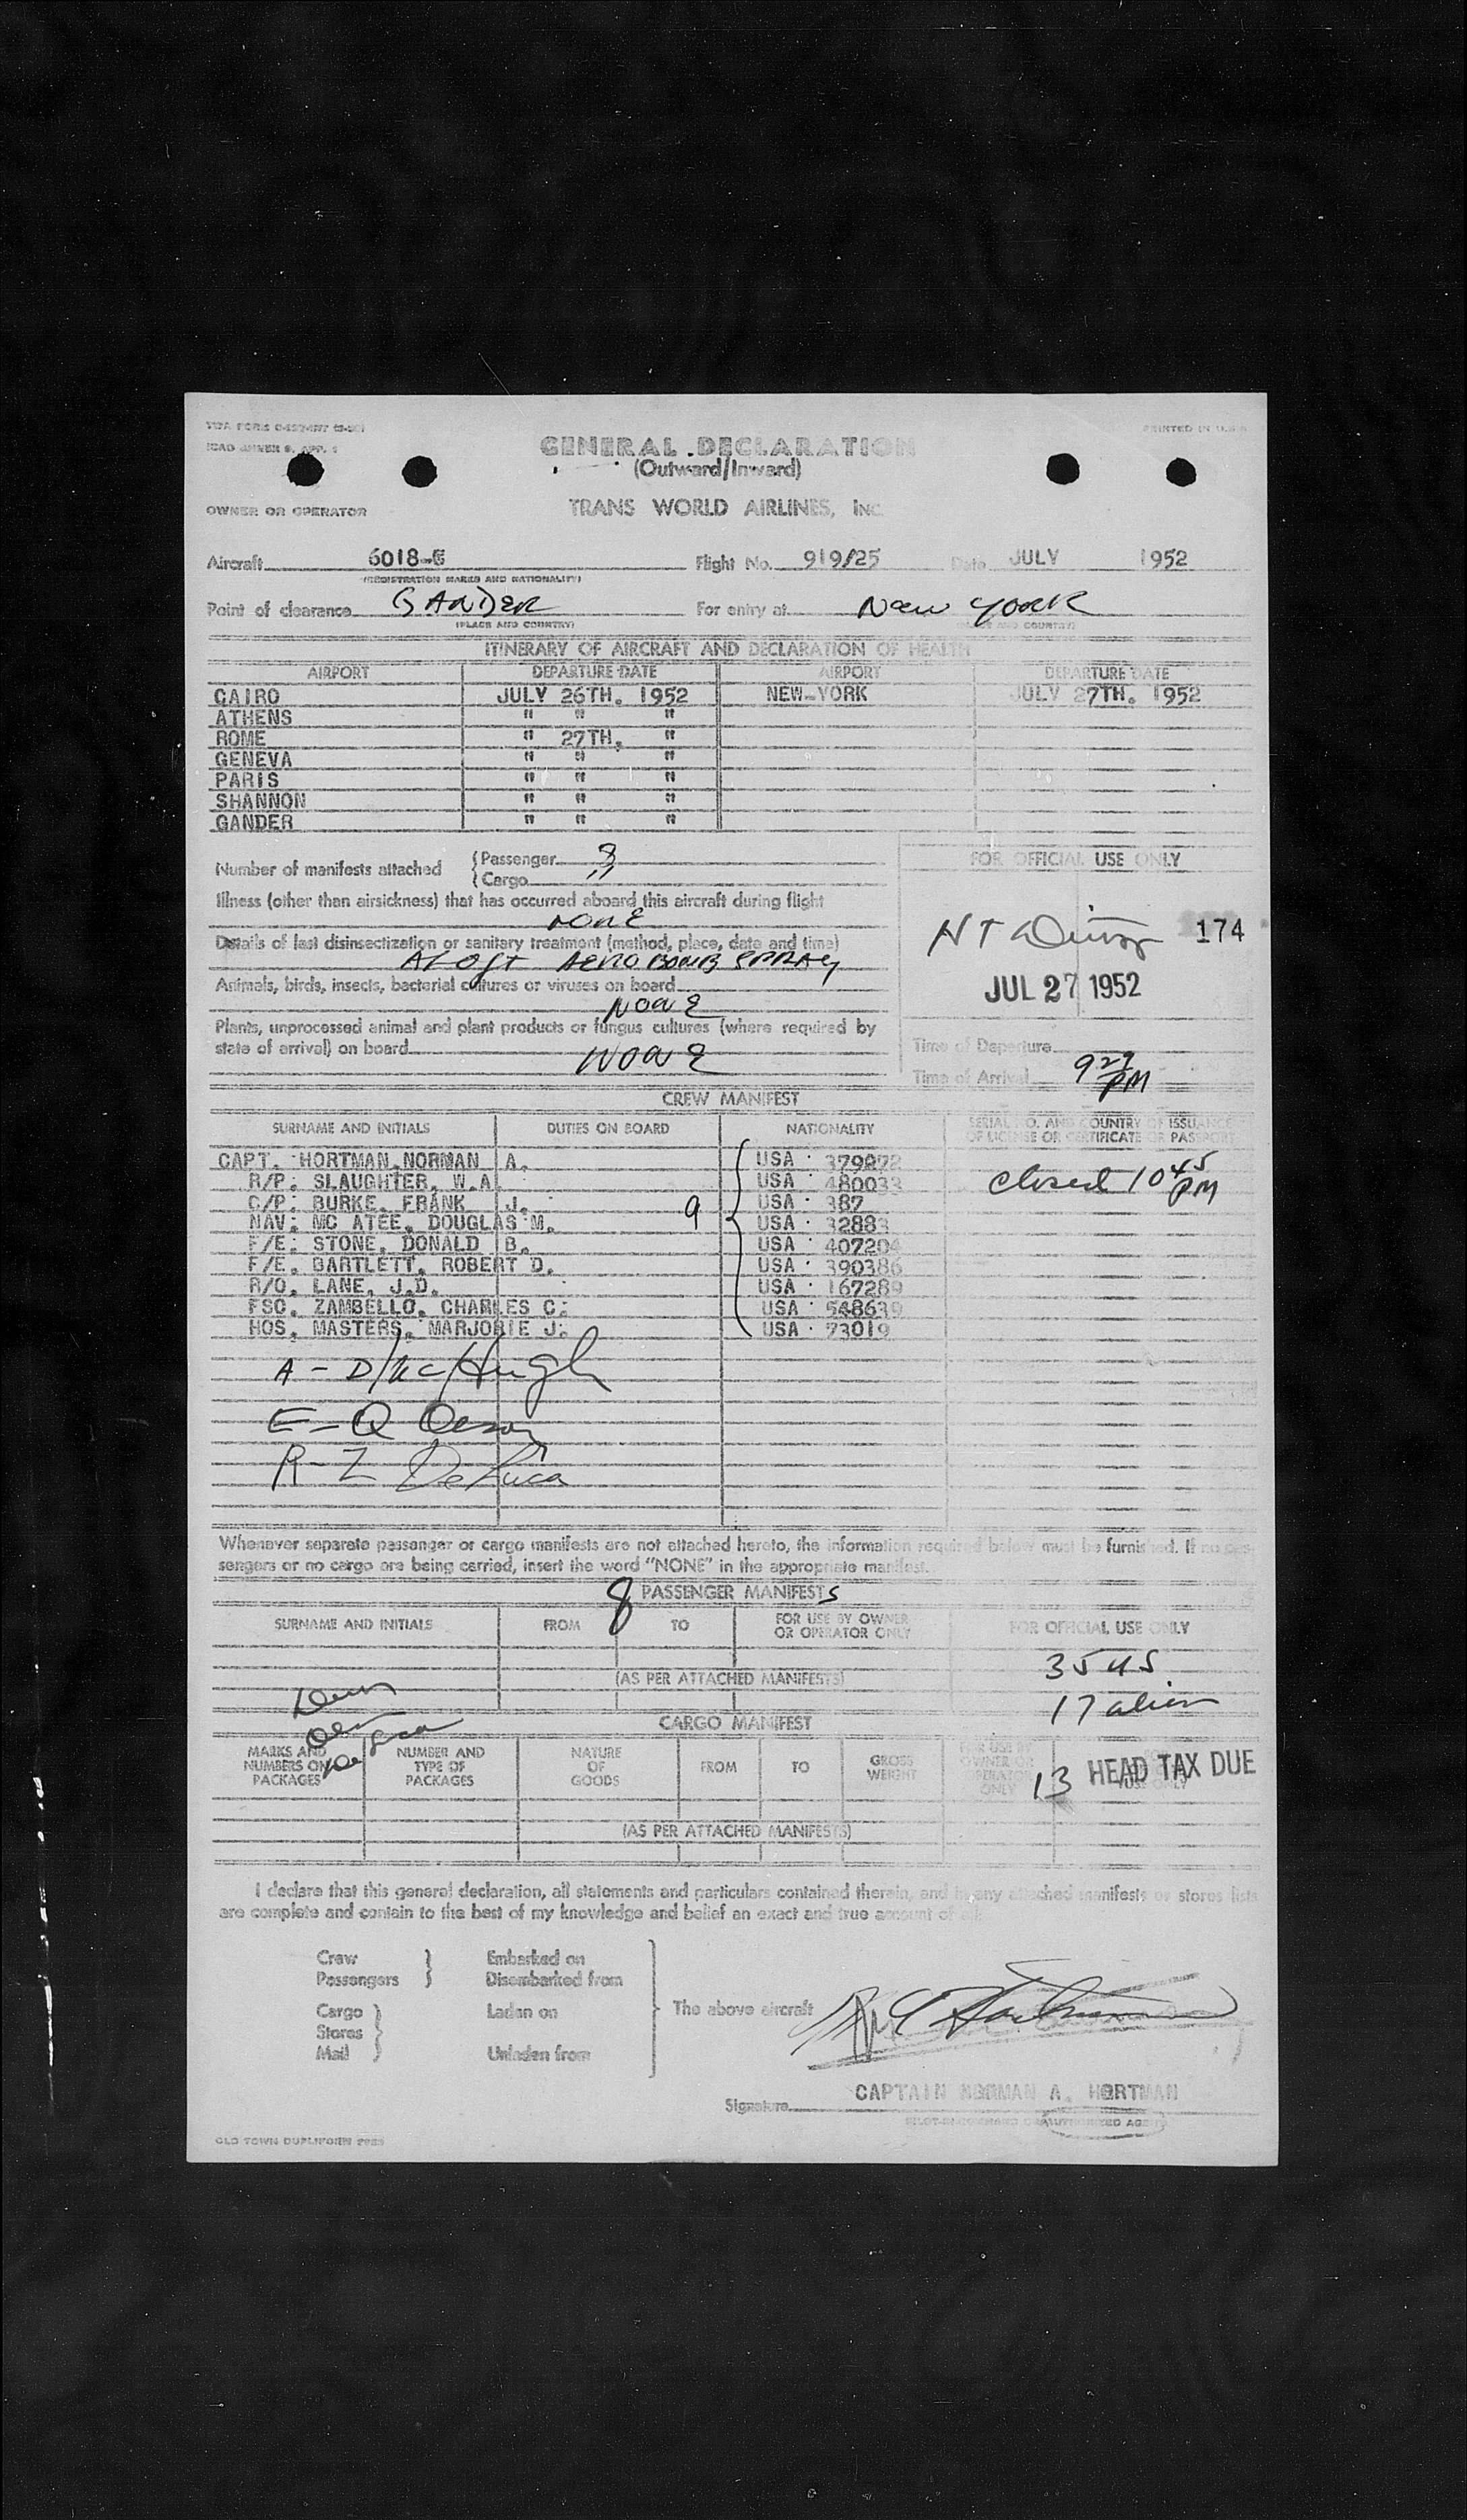 GENERAL DECLARATION
(Outward/Inward)
PRINTED IN U.S.A.
OWNER OR OPERATOR TRANS WORLD AIRLINES, INC.
Aircraft 6018-C Flight No. 919/25 Date JULY 1952
(REGISTRATION MARKS AND NATIONALITY)
Point of clearance GANDER For entry at New York
(PLACE AND COUNTRY) (PLACE AND COUNTRY)
ITINERARY OF AIRCRAFT AND DECLARATION OF HEALTH
AIRPORT DEPARTURE DATE AIRPORT DEPARTURE DATE
CAIRO JULY 26TH. 1952 NEW-YORK JULY 27TH. 1952
ATHENS " " "
ROME " 27TH, "
GENEVA " " "
PARIS " " "
SHANNON " " "
GANDER " " "
Number of manifests attached {Passenger 8
{Cargo "
FOR OFFICIAL USE ONLY
Illness (other than airsickness) that has occurred aboard this aircraft during flight
NONE
174
Details of last disinsectization or sanitary treatment (method, place, date and time)
ALOFT AERO BOMB SPRAY
JUL 27 1952
Animals, birds, insects, bacterial cultures or viruses on board
NONE
Plants, unprocessed animal and plant products or fungus cultures (where required by
state of arrival) on board NONE
Time of Departure
Time of Arrival 9 27 PM
CREW MANIFEST
SURNAME AND INITIALS DUTIES ON BOARD NATIONALITY SERIAL NO. AND COUNTRY OF ISSUANCE
OF LICENSE OR CERTIFICATE OR PASSPORT
CAPT. HORTMAN,NORMAN A. USA 379272
closed 10 45 PM
R/P. SLAUGHTER, W.A. USA 480033
C/P. BURKE, FRANK J. USA 387
NAV: MC ATEE, DOUGLAS M. 9 USA 32883
F/E: STONE, DONALD B. USA 407204
F/E. BARTLETT, ROBERT D. USA 390386
R/O. LANE, J.D. USA 167289
FSO. ZAMBELLO, CHARLES C. USA 548639
HOS. MASTERS, MARJORIE J. USA 73019
A - D McHugh
E - Q
R - I DeLuca
Whenever separate passenger or cargo manifests are not attached hereto, the information required below must be furnished. If no pas-
sengers or no cargo are being carried, insert the word "NONE" in the appropriate manifest.
8 PASSENGER MANIFESTS
SURNAME AND INITIALS FROM TO FOR USE BY OWNER
OR OPERATOR ONLY FOR OFFICIAL USE ONLY
35 US
(AS PER ATTACHED MANIFESTS)
17 alien
CARGO MANIFEST
MARKS AND
NUMBERS ON
PACKAGES NUMBER AND
TYPE OF
PACKAGES NATURE
OF
GOODS FROM TO GROSS
WEIGHT FOR USE BY
OWNER OR
OPERATOR
ONLY
13 HEAD TAX DUE
(AS PER ATTACHED MANIFESTS)
I declare that this general declaration, all statements and particulars contained therein, and in any attached manifests or stores lists
are complete and contain to the best of my knowledge and belief an exact and true account of all:
Crew
Passengers } Embarked on
Disembarked from
Cargo
Stores
Mail } Laden on
Unladen from
The above aircraft
N A Hortman
CAPTAIN NORMAN A. HORTMAN
Signature
OLD TOWN DUPLIFORM